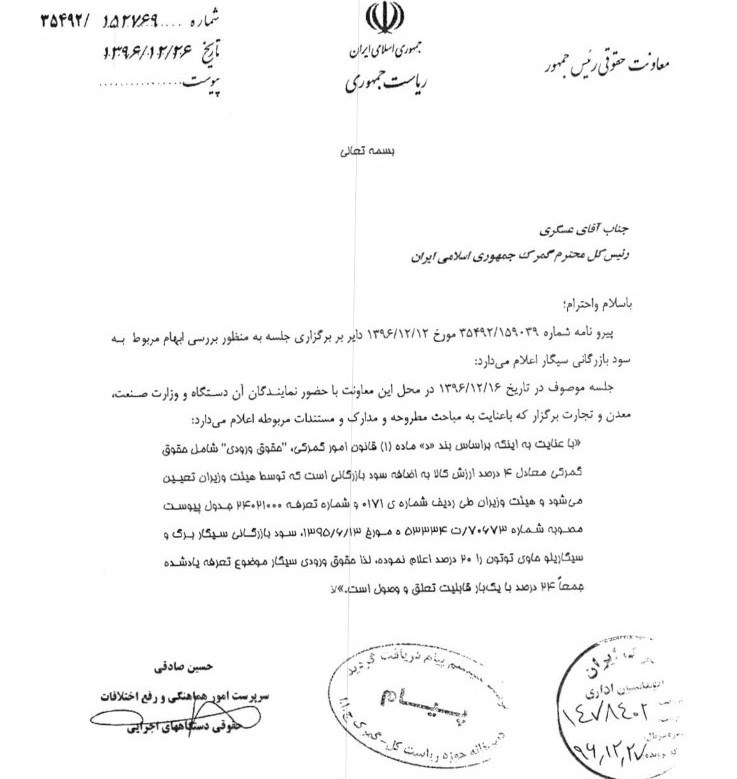 شماره .... ۱۵۲۷۶۹ / ۳۵۴۹۲
تاریخ ۱۳۹۶/۱۲/۲۶
پیوست ................
جمهوری اسلامی ایران
ریاست جمهوری
معاونت حقوقی رئیس جمهور
بسمه تعالی
جناب آقای عسگری
رئیس کل محترم گمرک جمهوری اسلامی ایران
باسلام واحترام؛
پیرو نامه شماره ۳۵۴۹۲/۱۵۹۰۳۹ مورخ ۱۳۹۶/۱۲/۱۲ دایر بر برگزاری جلسه به منظور بررسی ابهام مربوط به
سود بازرگانی سیگار اعلام می‌دارد:
جلسه موصوف در تاریخ ۱۳۹۶/۱۲/۱۶ در محل این معاونت با حضور نمایندگان آن دستگاه و وزارت صنعت،
معدن و تجارت برگزار که باعنایت به مباحث مطروحه و مدارک و مستندات مربوطه اعلام می‌دارد:
«با عنایت به اینکه براساس بند «د» ماده (۱) قانون امور گمرکی، "حقوق ورودی" شامل حقوق
گمرکی معادل ۴ درصد ارزش کالا به اضافه سود بازرگانی است که توسط هیئت وزیران تعیین
می‌شود و هیئت وزیران طی ردیف شماره ی ۰۱۷۱ و شماره تعرفه ۲۴۰۲۱۰۰۰ جدول پیوست
مصوبه شماره ۷۰۶۷۳/ت ۵۳۳۳۴ ه مورخ ۱۳۹۵/۶/۱۳، سود بازرگانی سیگار برگ و
سیگاریلو حاوی توتون را ۲۰ درصد اعلام نموده، لذا حقوق ورودی سیگار موضوع تعرفه یادشده
جمعاً ۲۴ درصد با یک‌بار قابلیت تعلق و وصول است.»/ا
حسین صادقی
سرپرست امور هماهنگی و رفع اختلافات
حقوقی دستگاههای اجرایی
سیستم پیام دریافت گردید
پیام
دبیرخانه حوزه ریاست کل-گمرک ج.ا.ا
ایران
اتوماسیون اداری
۱۴۷۸۴۰۲
۹۶,۱۲,۲۷